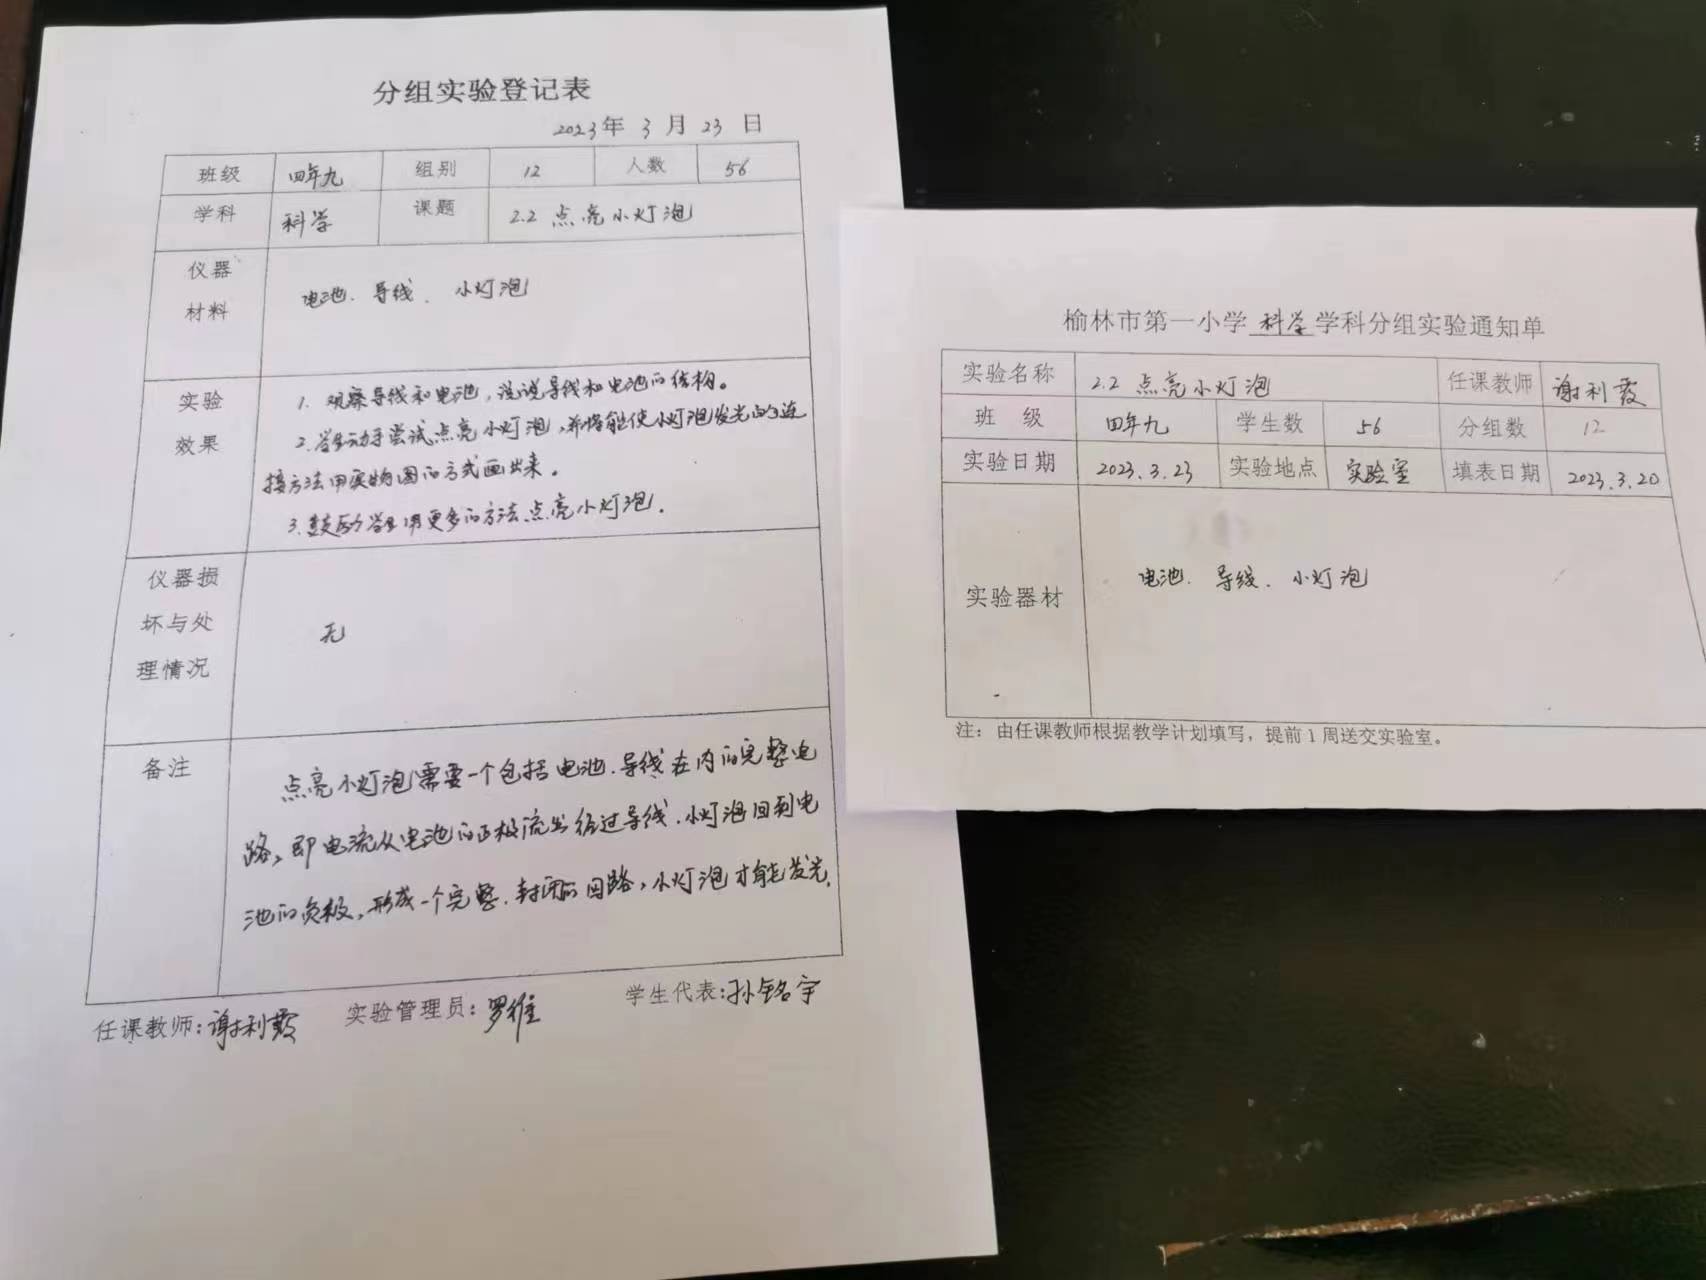 分组实验登记表
2023年 3 月 23 日
班级 四年九 组别 12 人数 56
学科 科学 课题 2.2 点亮小灯泡
仪器
材料
电池、导线、小灯泡
实验
效果
1. 观察导线和电池,说说导线和电池的结构。
2. 学生动手尝试点亮小灯泡,并将能使小灯泡发光的连
接方法用实物图的方式画出来。
3. 鼓励学生用更多的方法点亮小灯泡.
仪器损
坏与处
理情况
无
备注
点亮小灯泡需要一个包括电池、导线在内的完整电
路,即电流从电池的正极流出经过导线、小灯泡回到电
池的负极,形成一个完整、封闭的回路,小灯泡才能发光.
任课教师:谢利霞 实验管理员:罗维 学生代表:孙铭宇
榆林市第一小学 科学 学科分组实验通知单
实验名称 2.2 点亮小灯泡 任课教师 谢利霞
班 级 四年九 学生数 56 分组数 12
实验日期 2023.3.23 实验地点 实验室 填表日期 2023.3.20
实验器材 电池、导线、小灯泡
注:由任课教师根据教学计划填写,提前1周送交实验室。